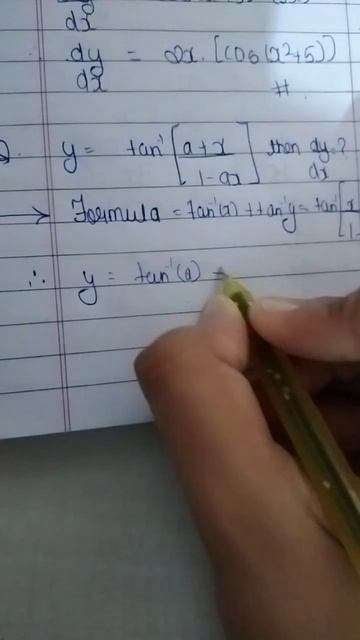 dx
dy/dx = 2x. [cos(x²+5)]
#
Q. y = tan⁻¹[a+x/1-ax] then dy/dx?
→ Formula = tan⁻¹(x) + tan⁻¹y = tan⁻¹[x
1-
∴ y = tan⁻¹(a) +